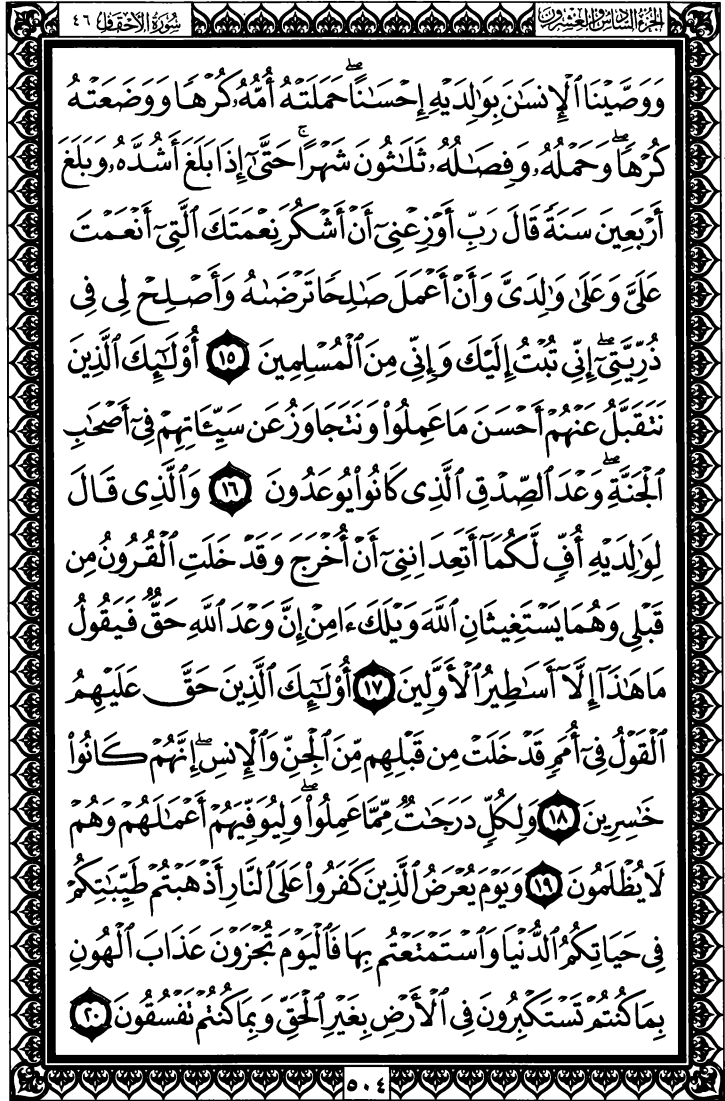 الجزء السادس والعشرون سورة الأحقاف ٤٦
وَوَصَّيْنَا ٱلْإِنسَٰنَ بِوَٰلِدَيْهِ إِحْسَٰنًا ۖ حَمَلَتْهُ أُمُّهُۥ كُرْهًا وَوَضَعَتْهُ
كُرْهًا ۖ وَحَمْلُهُۥ وَفِصَٰلُهُۥ ثَلَٰثُونَ شَهْرًا ۚ حَتَّىٰٓ إِذَا بَلَغَ أَشُدَّهُۥ وَبَلَغَ
أَرْبَعِينَ سَنَةً قَالَ رَبِّ أَوْزِعْنِىٓ أَنْ أَشْكُرَ نِعْمَتَكَ ٱلَّتِىٓ أَنْعَمْتَ
عَلَىَّ وَعَلَىٰ وَٰلِدَىَّ وَأَنْ أَعْمَلَ صَٰلِحًا تَرْضَىٰهُ وَأَصْلِحْ لِى فِى
ذُرِّيَّتِىٓ ۖ إِنِّى تُبْتُ إِلَيْكَ وَإِنِّى مِنَ ٱلْمُسْلِمِينَ ١٥ أُو۟لَٰٓئِكَ ٱلَّذِينَ
نَتَقَبَّلُ عَنْهُمْ أَحْسَنَ مَا عَمِلُوا۟ وَنَتَجَاوَزُ عَن سَيِّـَٔاتِهِمْ فِىٓ أَصْحَٰبِ
ٱلْجَنَّةِ ۖ وَعْدَ ٱلصِّدْقِ ٱلَّذِى كَانُوا۟ يُوعَدُونَ ١٦ وَٱلَّذِى قَالَ
لِوَٰلِدَيْهِ أُفٍّ لَّكُمَآ أَتَعِدَانِنِىٓ أَنْ أُخْرَجَ وَقَدْ خَلَتِ ٱلْقُرُونُ مِن
قَبْلِى وَهُمَا يَسْتَغِيثَانِ ٱللَّهَ وَيْلَكَ ءَامِنْ إِنَّ وَعْدَ ٱللَّهِ حَقٌّ فَيَقُولُ
مَا هَٰذَآ إِلَّآ أَسَٰطِيرُ ٱلْأَوَّلِينَ ١٧ أُو۟لَٰٓئِكَ ٱلَّذِينَ حَقَّ عَلَيْهِمُ
ٱلْقَوْلُ فِىٓ أُمَمٍ قَدْ خَلَتْ مِن قَبْلِهِم مِّنَ ٱلْجِنِّ وَٱلْإِنسِ ۖ إِنَّهُمْ كَانُوا۟
خَٰسِرِينَ ١٨ وَلِكُلٍّ دَرَجَٰتٌ مِّمَّا عَمِلُوا۟ ۖ وَلِيُوَفِّيَهُمْ أَعْمَٰلَهُمْ وَهُمْ
لَا يُظْلَمُونَ ١٩ وَيَوْمَ يُعْرَضُ ٱلَّذِينَ كَفَرُوا۟ عَلَى ٱلنَّارِ أَذْهَبْتُمْ طَيِّبَٰتِكُمْ
فِى حَيَاتِكُمُ ٱلدُّنْيَا وَٱسْتَمْتَعْتُم بِهَا فَٱلْيَوْمَ تُجْزَوْنَ عَذَابَ ٱلْهُونِ
بِمَا كُنتُمْ تَسْتَكْبِرُونَ فِى ٱلْأَرْضِ بِغَيْرِ ٱلْحَقِّ وَبِمَا كُنتُمْ تَفْسُقُونَ ٢٠
٥٠٤